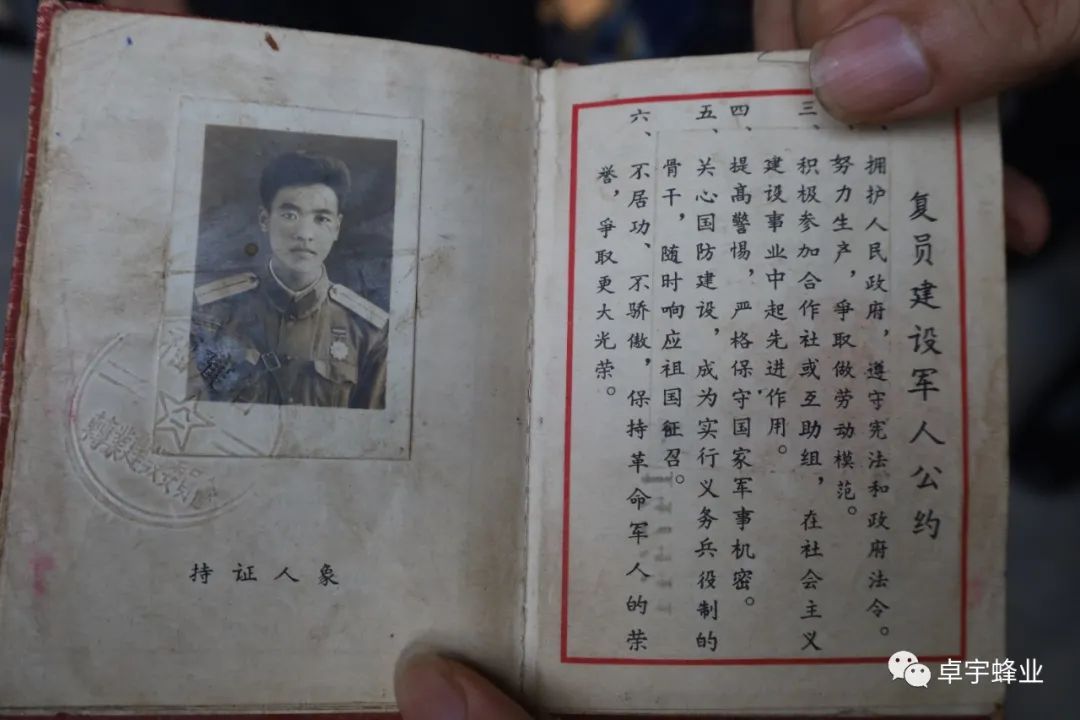 持证人象
复员建设军人公约
拥护人民政府，遵守宪法和政府法令。
努力生产，爭取做劳动模范。
三、积极参加合作社或互助组，在社会主义
建设事业中起先进作用。
四、提高警惕，严格保守国家军事机密。
五、关心国防建设，成为实行义务兵役制的
骨干，随时响应祖国征召。
六、不居功、不骄傲，保持革命军人的荣
誉，爭取更大光荣。
卓宇蜂业